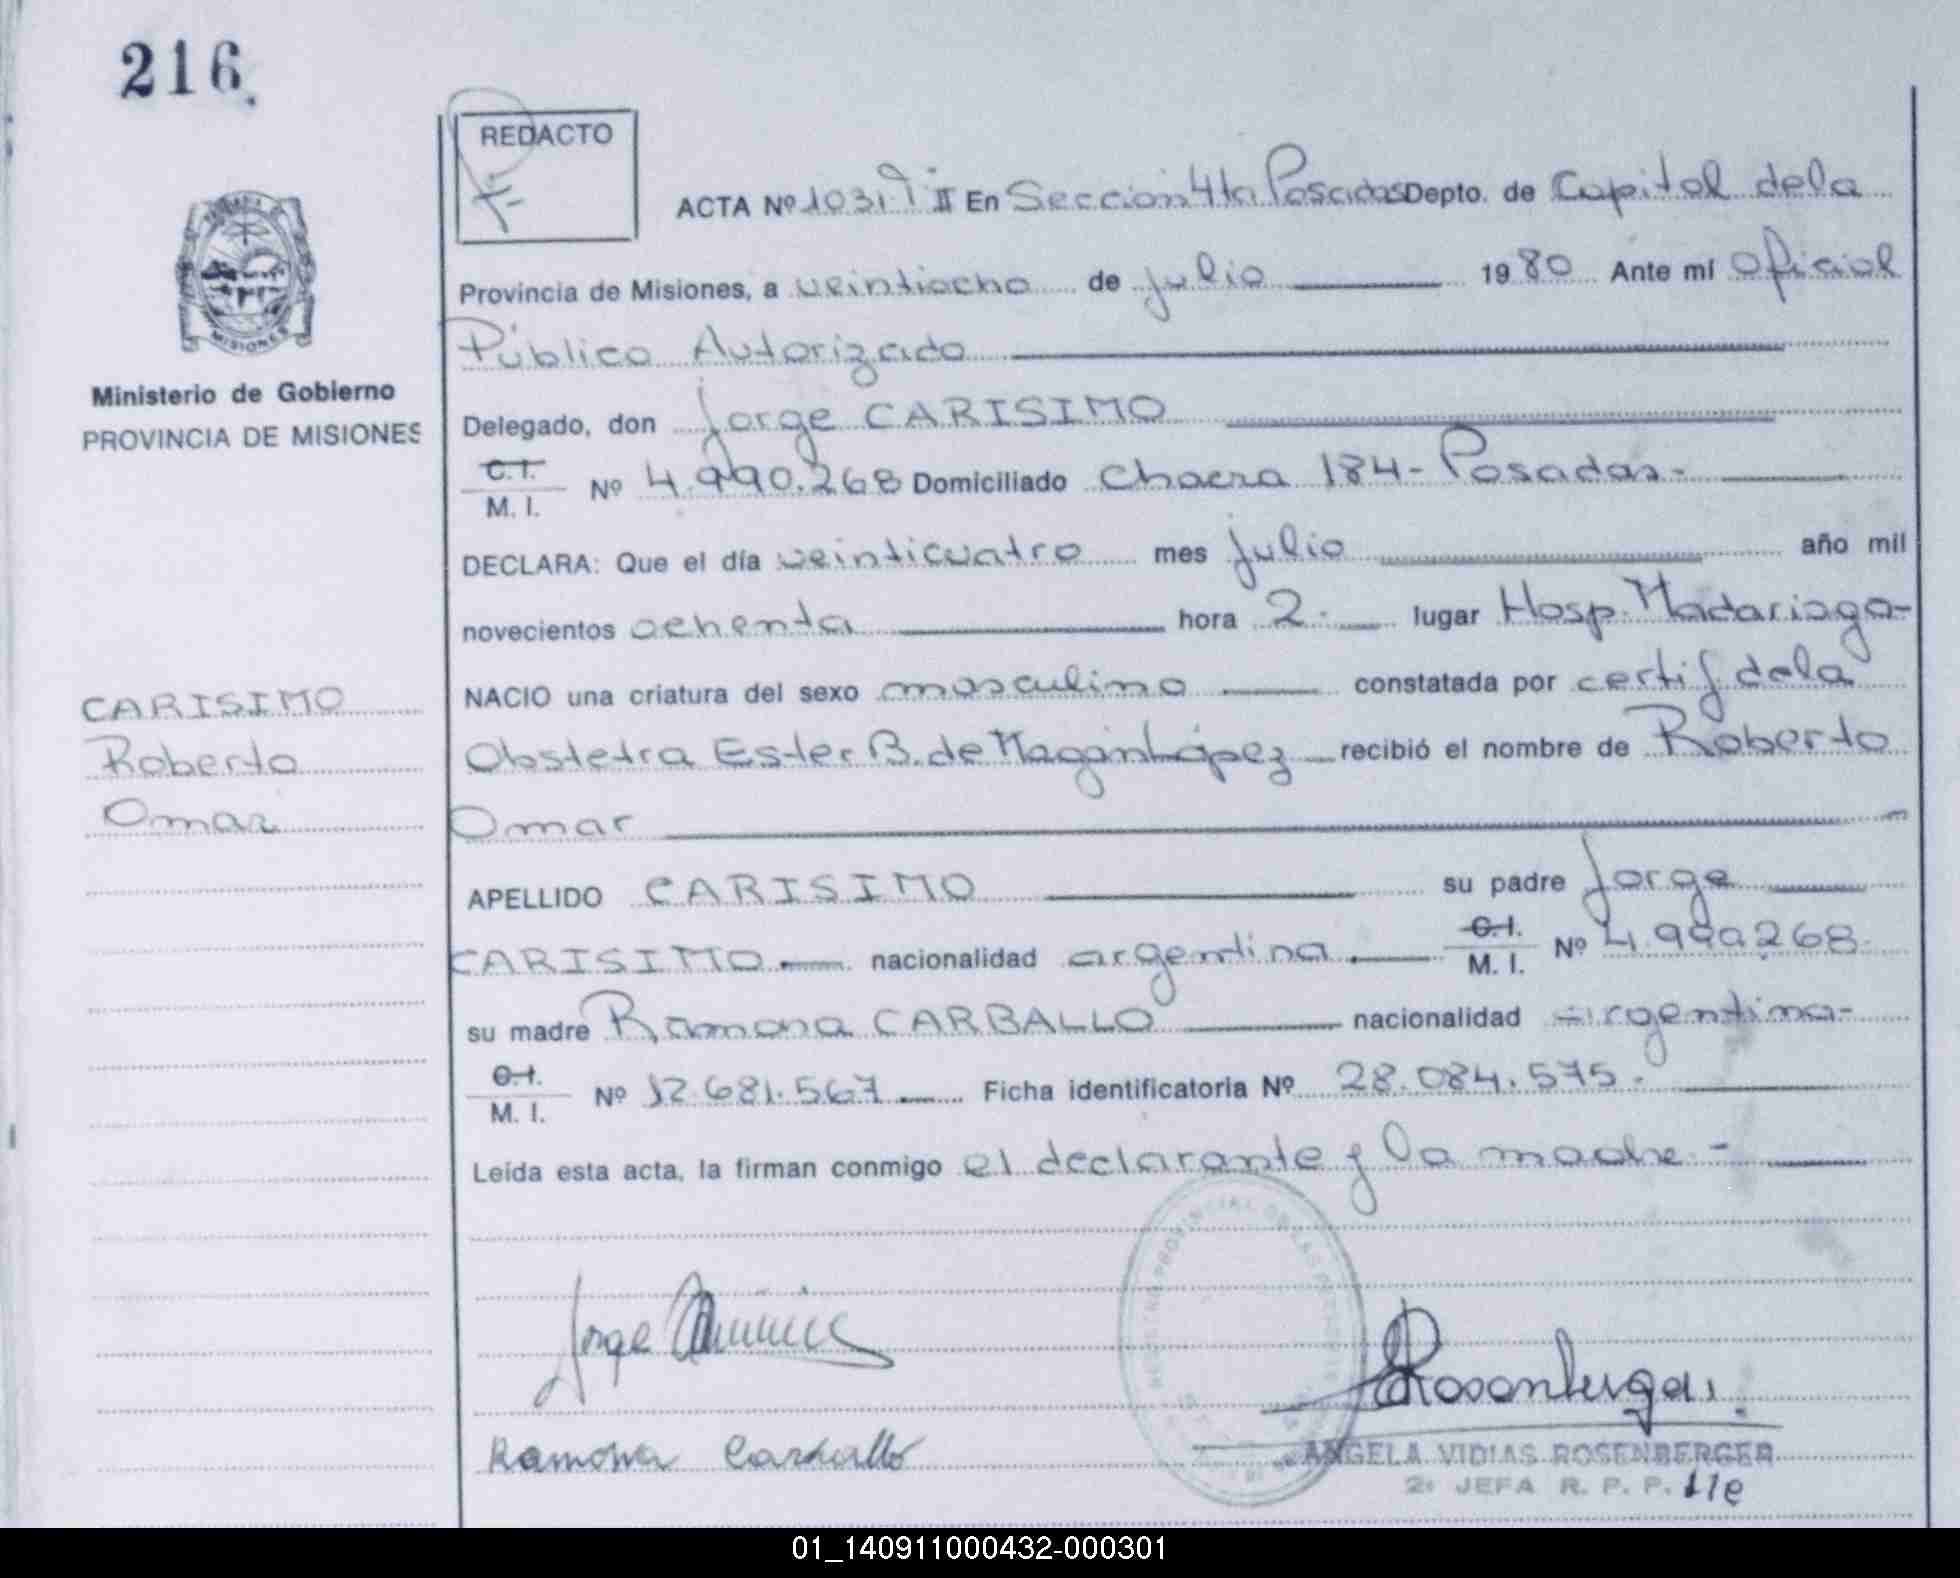 216.
REDACTO
ACTA Nº 1031 T II En Sección 4ta Posadas Depto. de Capital de la
Provincia de Misiones, a veintiocho de julio 1980 Ante mí Oficial
Público Autorizado
MISIONES
Ministerio de Gobierno
PROVINCIA DE MISIONES
Delegado, don Jorge CARISIMO
C.I.
M. I. Nº 4.990.268 Domiciliado Chacra 184 - Posadas -
DECLARA: Que el día veinticuatro mes julio año mil
novecientos ochenta hora 2. lugar Hosp. Madariaga -
CARISIMO
Roberto
Omar
NACIO una criatura del sexo masculino constatada por certif de la
Obstetra Ester B. de López recibió el nombre de Roberto
Omar
APELLIDO CARISIMO su padre Jorge
CARISIMO nacionalidad argentina C.I. M. I. Nº 4.990.268
su madre Ramona CARBALLO nacionalidad argentina -
C.I.
M. I. Nº 12.681.567 Ficha identificatoria Nº 28.084.575.
Leída esta acta, la firman conmigo el declarante y la madre -
Jorge
Ramona Carballo
Rosenberger
ANGELA VIDIAS ROSENBERGER
2ª JEFA R. P. P.
01_140911000432-000301